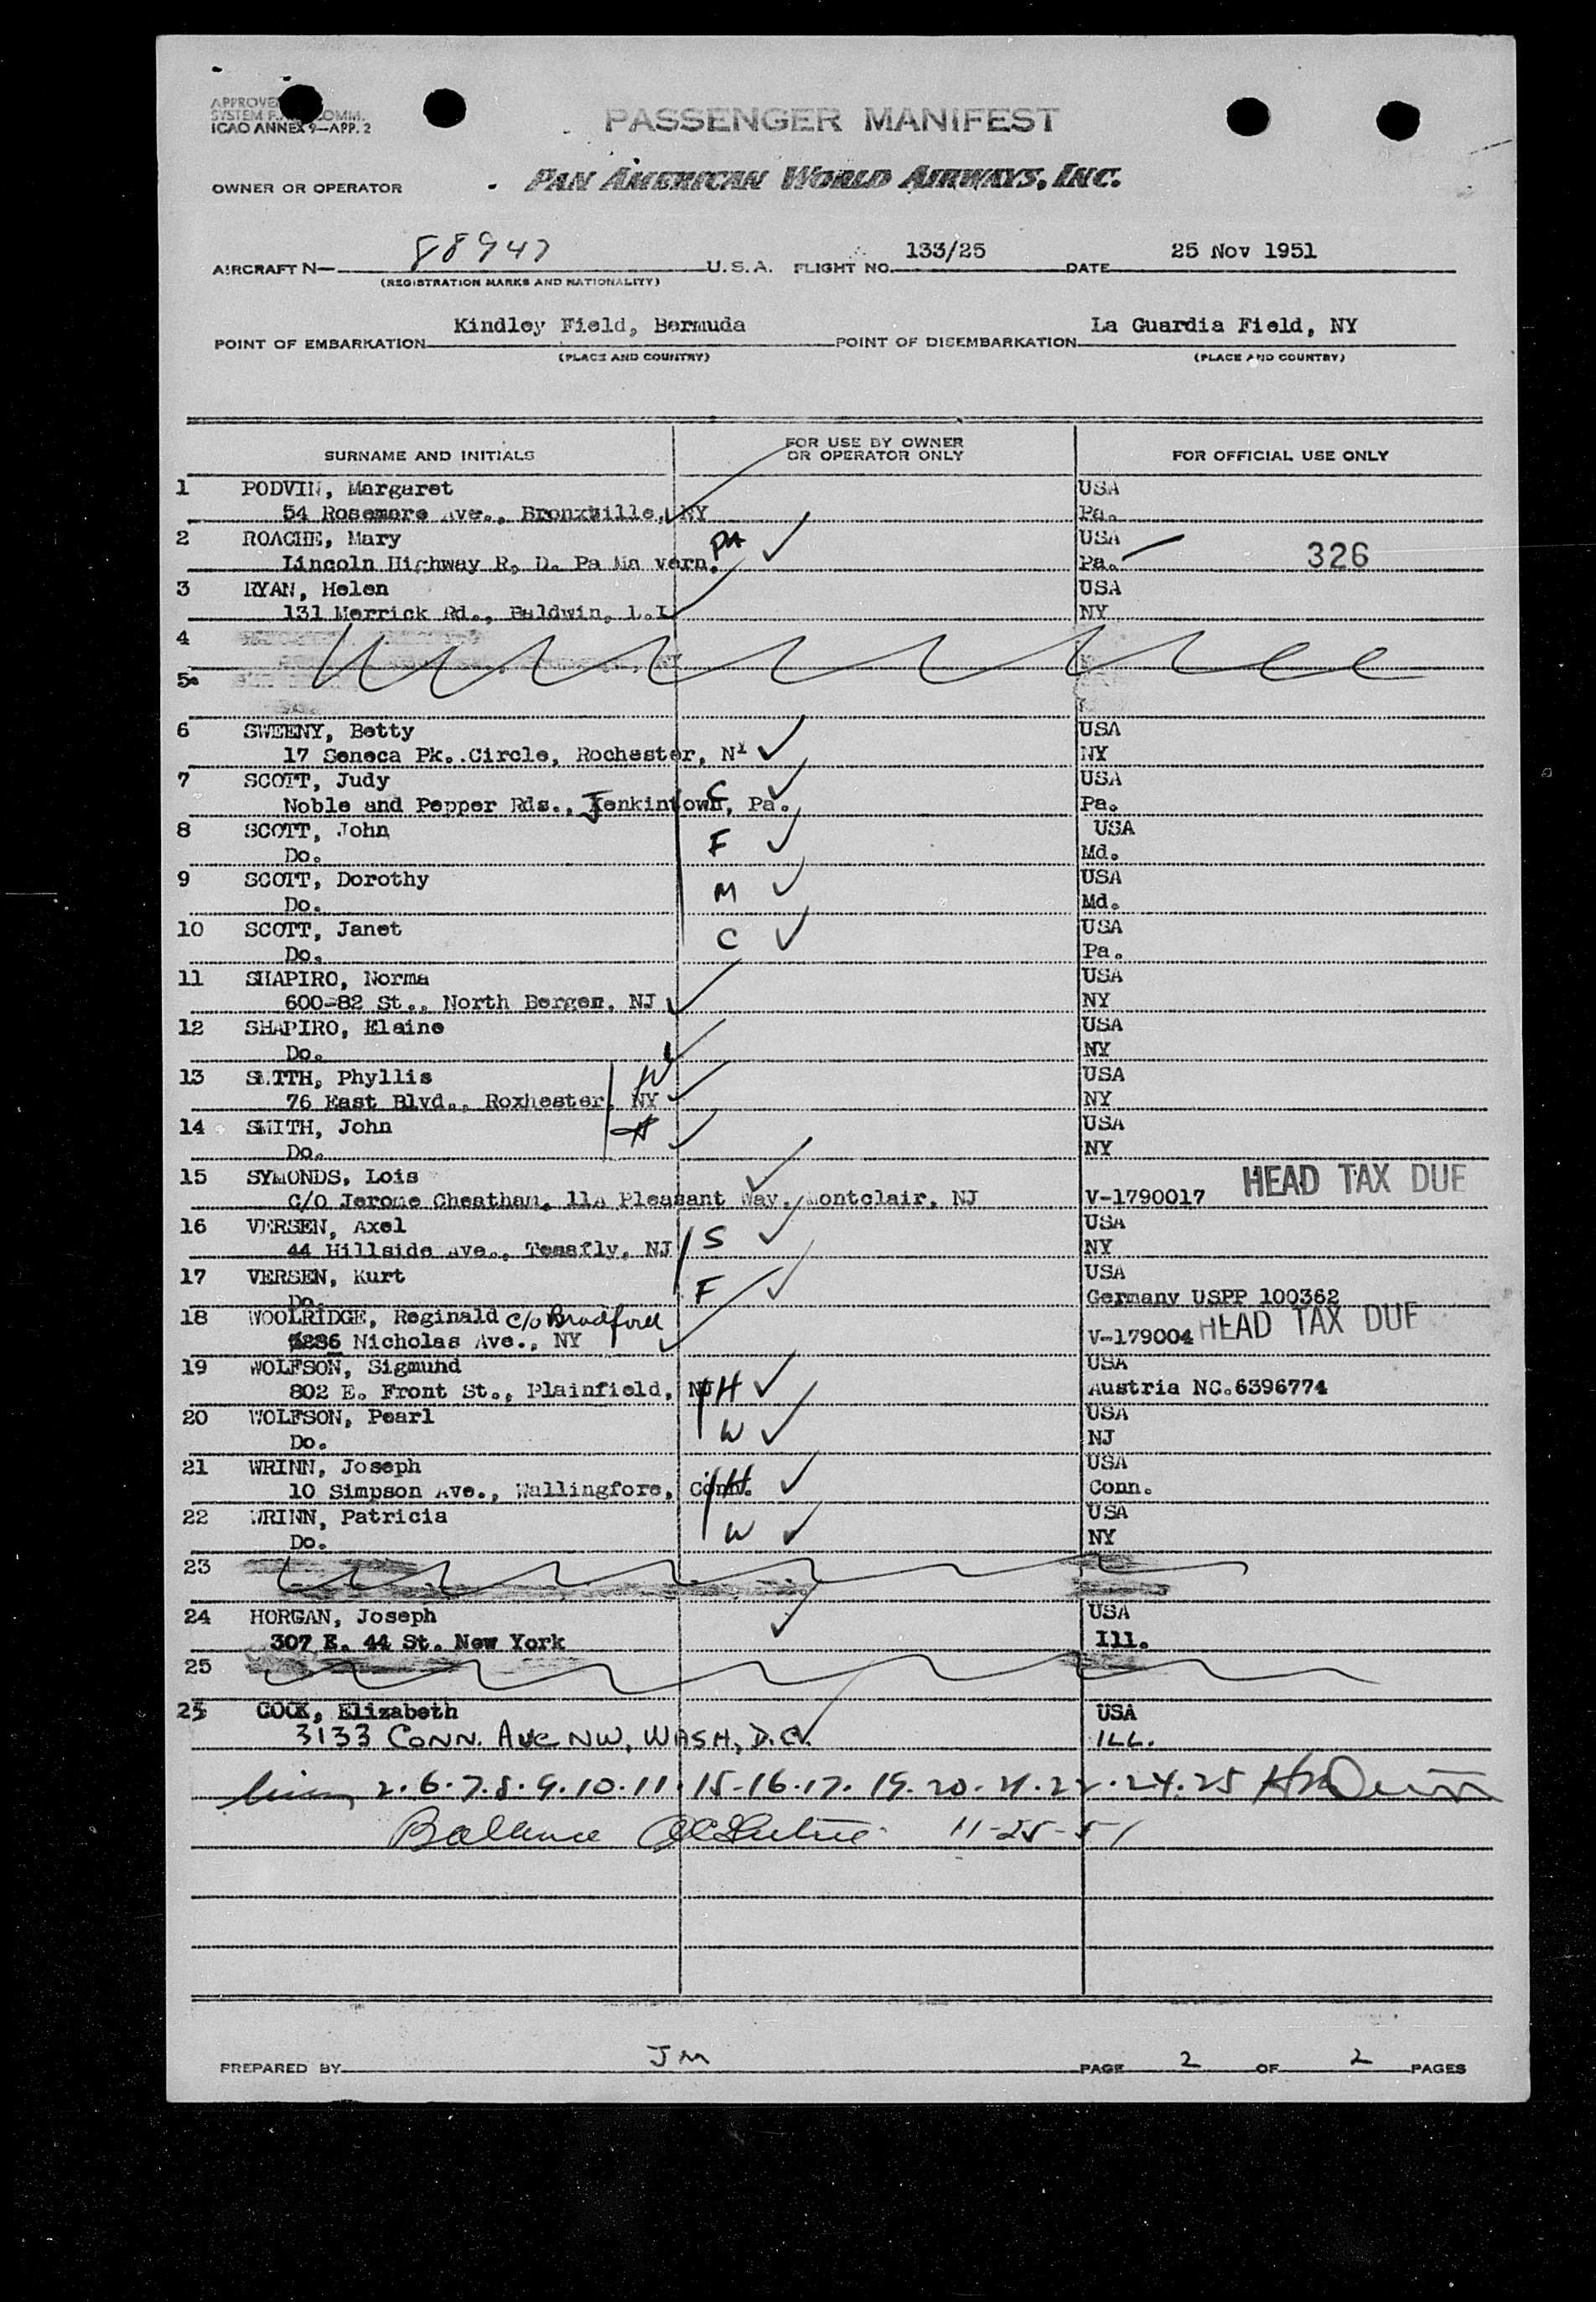 ICAO ANNEX 9—APP. 2
PASSENGER MANIFEST
OWNER OR OPERATOR PAN AMERICAN WORLD AIRWAYS, INC.
AIRCRAFT N— 88947 U.S.A. FLIGHT NO. 133/25 DATE 25 Nov 1951
(REGISTRATION MARKS AND NATIONALITY)
POINT OF EMBARKATION Kindley Field, Bermuda POINT OF DISEMBARKATION La Guardia Field, NY
(PLACE AND COUNTRY) (PLACE AND COUNTRY)
SURNAME AND INITIALS FOR USE BY OWNER OR OPERATOR ONLY FOR OFFICIAL USE ONLY
1 PODVIN, Margaret USA
54 Rosemere Ave., Bronxbille, NY Pa.
2 ROACHE, Mary USA
Lincoln Highway R. D. Pa Ma vern. PA Pa. 326
3 RYAN, Helen USA
131 Merrick Rd., Baldwin, L.I NY
4
5
6 SWEENY, Betty USA
17 Seneca Pk. Circle, Rochester, NY NY
7 SCOTT, Judy C USA
Noble and Pepper Rds., Jenkintown, Pa. Pa.
8 SCOTT, John F USA
Do. Md.
9 SCOTT, Dorothy M USA
Do. Md.
10 SCOTT, Janet C USA
Do. Pa.
11 SHAPIRO, Norma USA
600-82 St., North Bergen, NJ NY
12 SHAPIRO, Elaine USA
Do. NY
13 SMITH, Phyllis W USA
76 East Blvd., Roxhester, NY NY
14 SMITH, John H USA
Do. NY
15 SYMONDS, Lois HEAD TAX DUE
C/O Jerome Cheatham, 11A Pleasant Way, Montclair, NJ V-1790017
16 VERSEN, Axel S USA
44 Hillside Ave., Tenafly, NJ NY
17 VERSEN, Kurt F USA
Do. Germany USPP 100362
18 WOOLRIDGE, Reginald c/o Bradford HEAD TAX DUE
Nicholas Ave., NY V-179004
19 WOLFSON, Sigmund USA
802 E. Front St., Plainfield, NJ H Austria NC.6396774
20 WOLFSON, Pearl USA
Do. W NJ
21 WRINN, Joseph USA
10 Simpson Ave., Wallingfore, Conn. H Conn.
22 WRINN, Patricia USA
Do. W NY
23
24 HORGAN, Joseph USA
307 E. 44 St. New York Ill.
25
25 COCK, Elizabeth USA
3133 CONN. AVE NW, WASH, D.C. ILL.
2.6.7.8.9.10.11.15-16.17.19.20.21.22.24.25
Balance 11-25-51
PREPARED BY JM PAGE 2 OF 2 PAGES